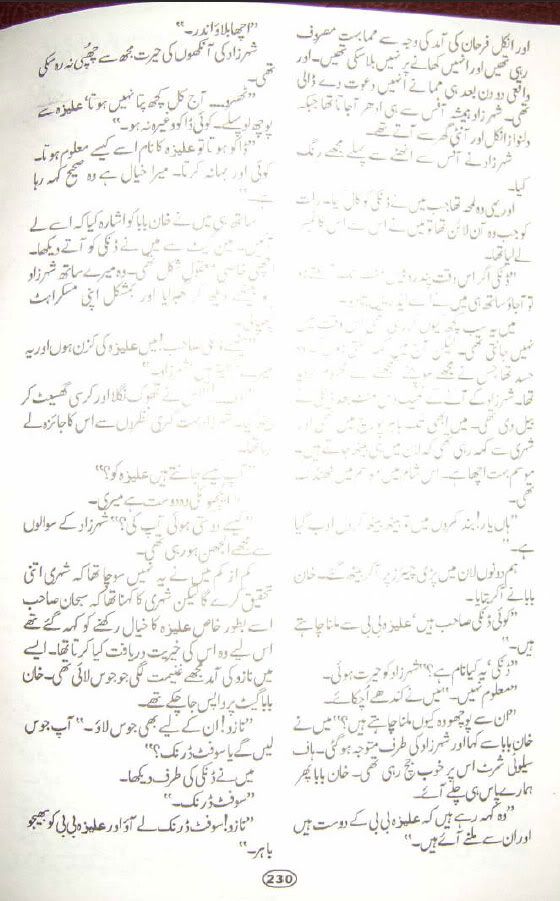 اور انکل فرحان کی آمد کی وجہ سے مما بہت مصروف
رہی تھیں اور انہیں کھانے پر نہیں بلا سکی تھیں۔ اور
واقعی دو دن بعد ہی مما نے انہیں دعوت دے ڈالی
تھی۔ شہرزاد ہمیشہ آفس سے ہی ادھر آ جاتا تھا جبکہ
دلنواز انکل اور آنٹی گھر سے آتے تھے۔
شہرزاد نے آفس سے اٹھنے سے پہلے مجھے رنگ
کیا۔
اور یہی وہ لمحہ تھا جب میں نے ڈنکی کو کال کیا۔ رات
کو جب وہ آن لائن تھا تو میں نے اس سے اس کا نمبر
لے لیا تھا۔
"ڈنکی اگر اس وقت پندرہ
تو آ جاؤ ساتھ ہی میں نے اسے
میں یہ سب کچھ کیوں کر رہی تھی اس وقت میں
نہیں جانتی تھی۔ لیکن
حسد تھا جس نے مجھے
تھا۔ شہرزاد کے آنے کے ٹھیک دس منٹ بعد ڈنکی نے
بیل دی تھی۔ میں ابھی
شہری سے کہہ رہی تھی کہ لان میں ہی بیٹھ جاتے ہیں۔
موسم بہت اچھا ہے۔ اس شام میں موسم میں خنکی
تھی۔
"ہاں یار! بند کمروں میں تو بیٹھ بیٹھ کر دل اوب گیا
ہے۔"
ہم دونوں لان میں پڑی چیئرز پر آ کر بیٹھ گئے۔ خان
بابا نے آ کر بتایا۔
"کوئی ڈنکی صاحب ہیں' علیزہ بی بی سے ملنا چاہتے
ہیں۔"
"ڈنکی' یہ کیا نام ہے؟" شہرزاد کو حیرت ہوئی۔
"معلوم نہیں۔" میں نے کندھے اچکائے۔
"ان سے پوچھو وہ کیوں ملنا چاہتے ہیں؟" میں نے
خان بابا سے کہا اور شہرزاد کی طرف متوجہ ہو گئی۔ ہاف
سلیوز کی شرٹ اس پر خوب جچ رہی تھی۔ خان بابا پھر
ہمارے پاس ہی چلے آئے۔
"وہ کہہ رہے ہیں کہ علیزہ بی بی کے دوست ہیں
اور ان سے ملنے آئے ہیں۔"
"اچھا بلاؤ اندر۔"
شہرزاد کی آنکھوں کی حیرت مجھ سے چھپی نہ رہ سکی
تھی۔
"ٹھہرو۔۔۔ آج کل کچھ پتا نہیں ہوتا' علیزہ سے
پوچھ لو پہلے۔ کوئی ڈاکو وغیرہ نہ ہو۔"
"ڈاکو ہوتا تو علیزہ کا نام اسے کیسے معلوم ہوتا۔
کوئی اور بہانہ کرتا۔ میرا خیال ہے وہ صحیح کہہ رہا
ہے۔"
ساتھ ہی میں نے خان بابا کو اشارہ کیا کہ اسے لے
آئیں۔ مین گیٹ سے میں نے ڈنکی کو آتے دیکھا۔
اچھی خاصی معقول شکل تھی۔ وہ میرے ساتھ شہرزاد
کو بیٹھے دیکھ کر گھبرایا اور بمشکل اپنی مسکراہٹ
"آیئے ڈنکی صاحب! میں علیزہ کی کزن ہوں اور یہ
میرے
اس نے تھوک نگلا اور کرسی گھسیٹ کر
شہرزاد بہت گہری نظروں سے اس کا جائزہ لے
رہا تھا۔
"آپ کیسے جانتے ہیں علیزہ کو؟"
وہ دوست ہے میری۔
"کیسے دوستی ہوئی آپ کی؟" شہرزاد کے سوالوں
سے مجھے الجھن ہو رہی تھی۔
کم از کم میں نے یہ نہیں سوچا تھا کہ شہری اتنی
تحقیق کرے گا لیکن شہری کا کہنا تھا کہ سبحان صاحب
اسے بطور خاص علیزہ کا خیال رکھنے کو کہہ گئے تھے
اس لیے وہ اس کی خیریت دریافت کیا کرتا تھا۔ ایسے
میں نازو کی آمد مجھے غنیمت لگی جو جوس لائی تھی۔ خان
بابا گیٹ پر واپس جا چکے تھے۔
"نازو! ان کے لیے بھی جوس لاؤ۔" آپ جوس
لیں گے یا سوفٹ ڈرنک؟"
میں نے ڈنکی کی طرف دیکھا۔
"سوفٹ ڈرنک۔"
"نازو! سوفٹ ڈرنک لے آؤ اور علیزہ بی بی کو بھیجو
باہر۔"
230